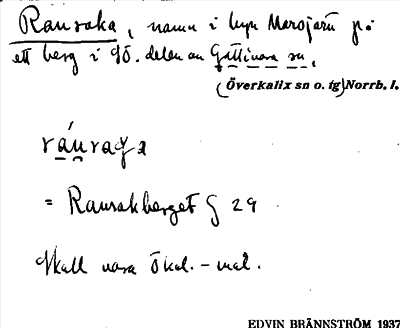 Rausaka, namn i byn Marsjärv på
ett berg i sö. delen av Gällivare sn,
(Överkalix sn o. tg) Norrb. l.
ráuraga
= Rausakberget § 29
Skall vara Ökal. - mål.
EDVIN BRÄNNSTRÖM 1937